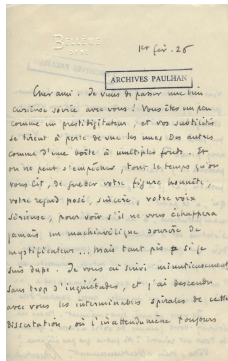 BRIARE
1er fév. 26
ARCHIVES PAULHAN
Cher ami. Je viens de passer une bien
curieuse soirée avec vous ! Vous êtes un peu
comme un prestidigitateur, et vos subtilités
se tirent à perte de vue les unes des autres
comme d'une boîte à multiples fonds. Et
on ne peut s'empêcher, tout le temps qu'on
vous lit, de guetter votre figure honnête,
votre regard posé, sincère, votre voix
sérieuse, pour voir s'il ne vous échappera
jamais un machiavélique sourire de
mystificateur... Mais tant pis si je
suis dupe. Je vous ai suivi minutieusement
sans trop d'inquiétudes, et j'ai descendu
avec vous les interminables spirales de cette
dissertation, où l'inattendu mène toujours